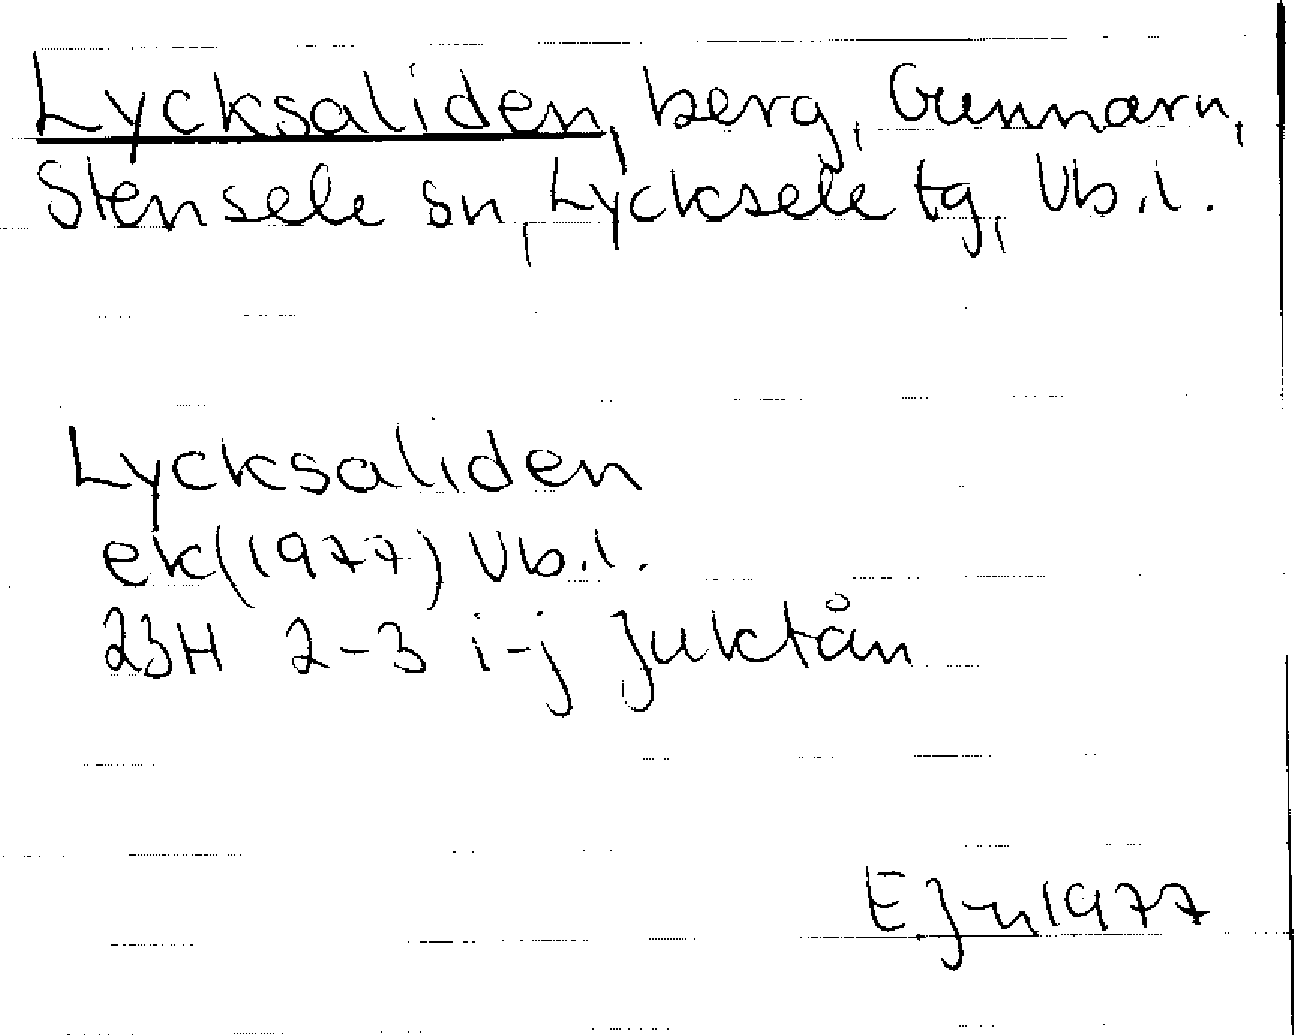 Lycksaliden, berg, Gunnarn,
Stensele sn, Lycksele tg, Vb.l.
Lycksaliden
ek(1977) Vb.l.
23H 2-3 i-j Juktån
1977